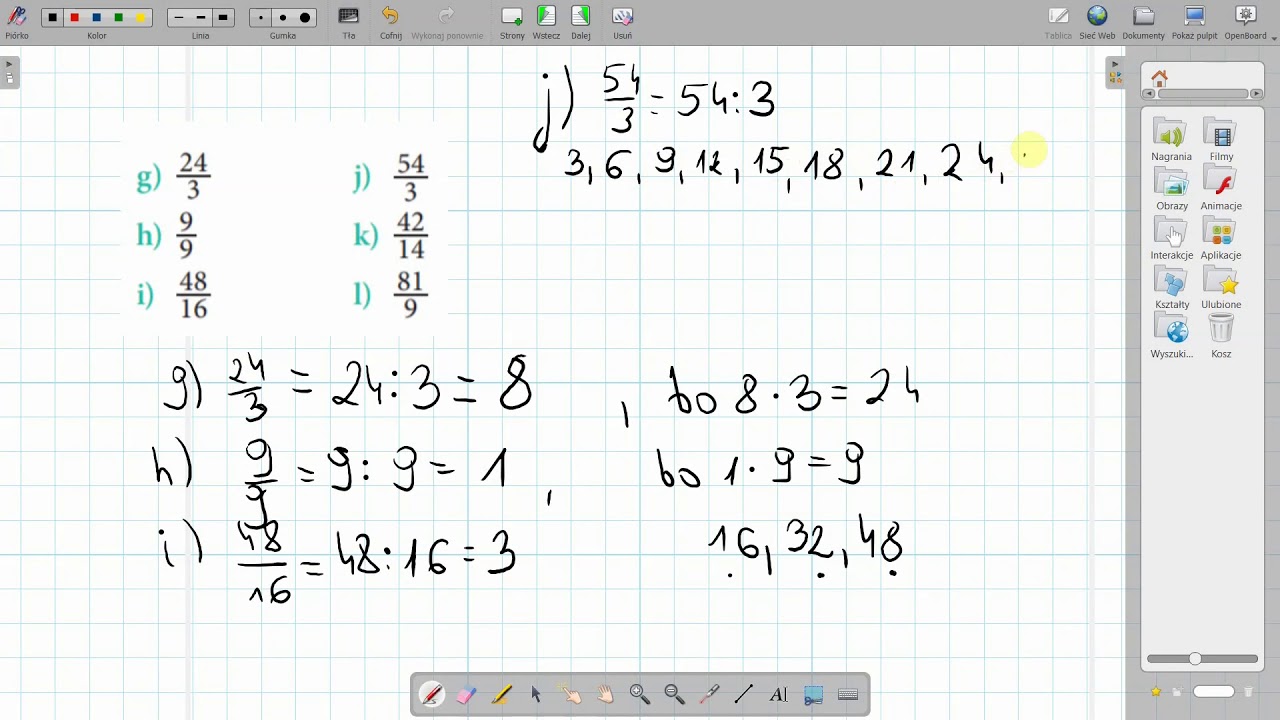 Piórko Kolor Linia Gumka Tło Cofnij Wykonaj ponownie Strony Wstecz Dalej Usuń Tablica Sieć Web Dokumenty Pokaż pulpit OpenBoard
j) 54/3 = 54:3
3, 6, 9, 12, 15, 18, 21, 24,
g) 24/3 j) 54/3
h) 9/9 k) 42/14
i) 48/16 l) 81/9
g) 24/3 = 24:3 = 8, bo 8·3 = 24
h) 9/9 = 9:9 = 1, bo 1·9 = 9
i) 48/16 = 48:16 = 3 16, 32, 48
Nagrania Filmy
Obrazy Animacje
Interakcje Aplikacje
Kształty Ulubione
Wyszuki... Kosz
AI